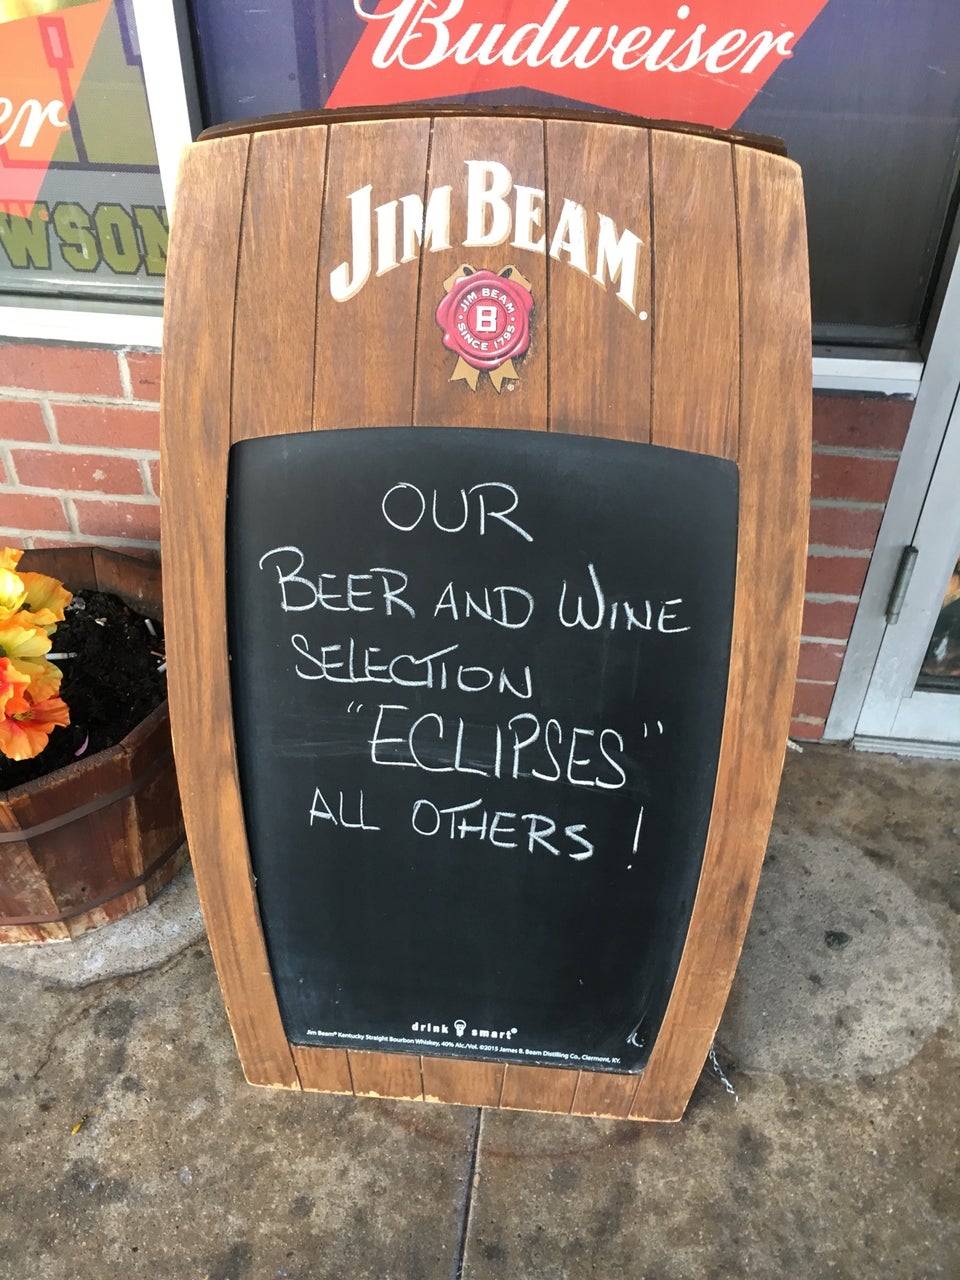 Budweiser
er
W'SON
JIM BEAM
JIM BEAM
B
SINCE 1795
OUR
BEER AND WINE
SELECTION
"ECLIPSES"
ALL OTHERS !
drink smart®
Jim Beam® Kentucky Straight Bourbon Whiskey, 40% Alc./Vol. ©2015 James B. Beam Distilling Co., Clermont, KY.